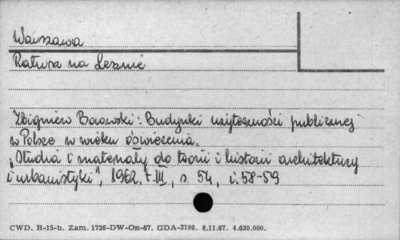 Warszawa
Ratusz na Lesznie
Zbigniew Borowski: Budynki użyteczności publicznej
w Polsce w wieku oświecenia.
„Studia i materiały do teorii i historii architektury
i urbanistyki", 1962, t. III, s. 54, i. 58-59
CWD. B-15-b. Zam. 1726-DW-On-67. GDA-3198. 8.11.67. 4.630.000.